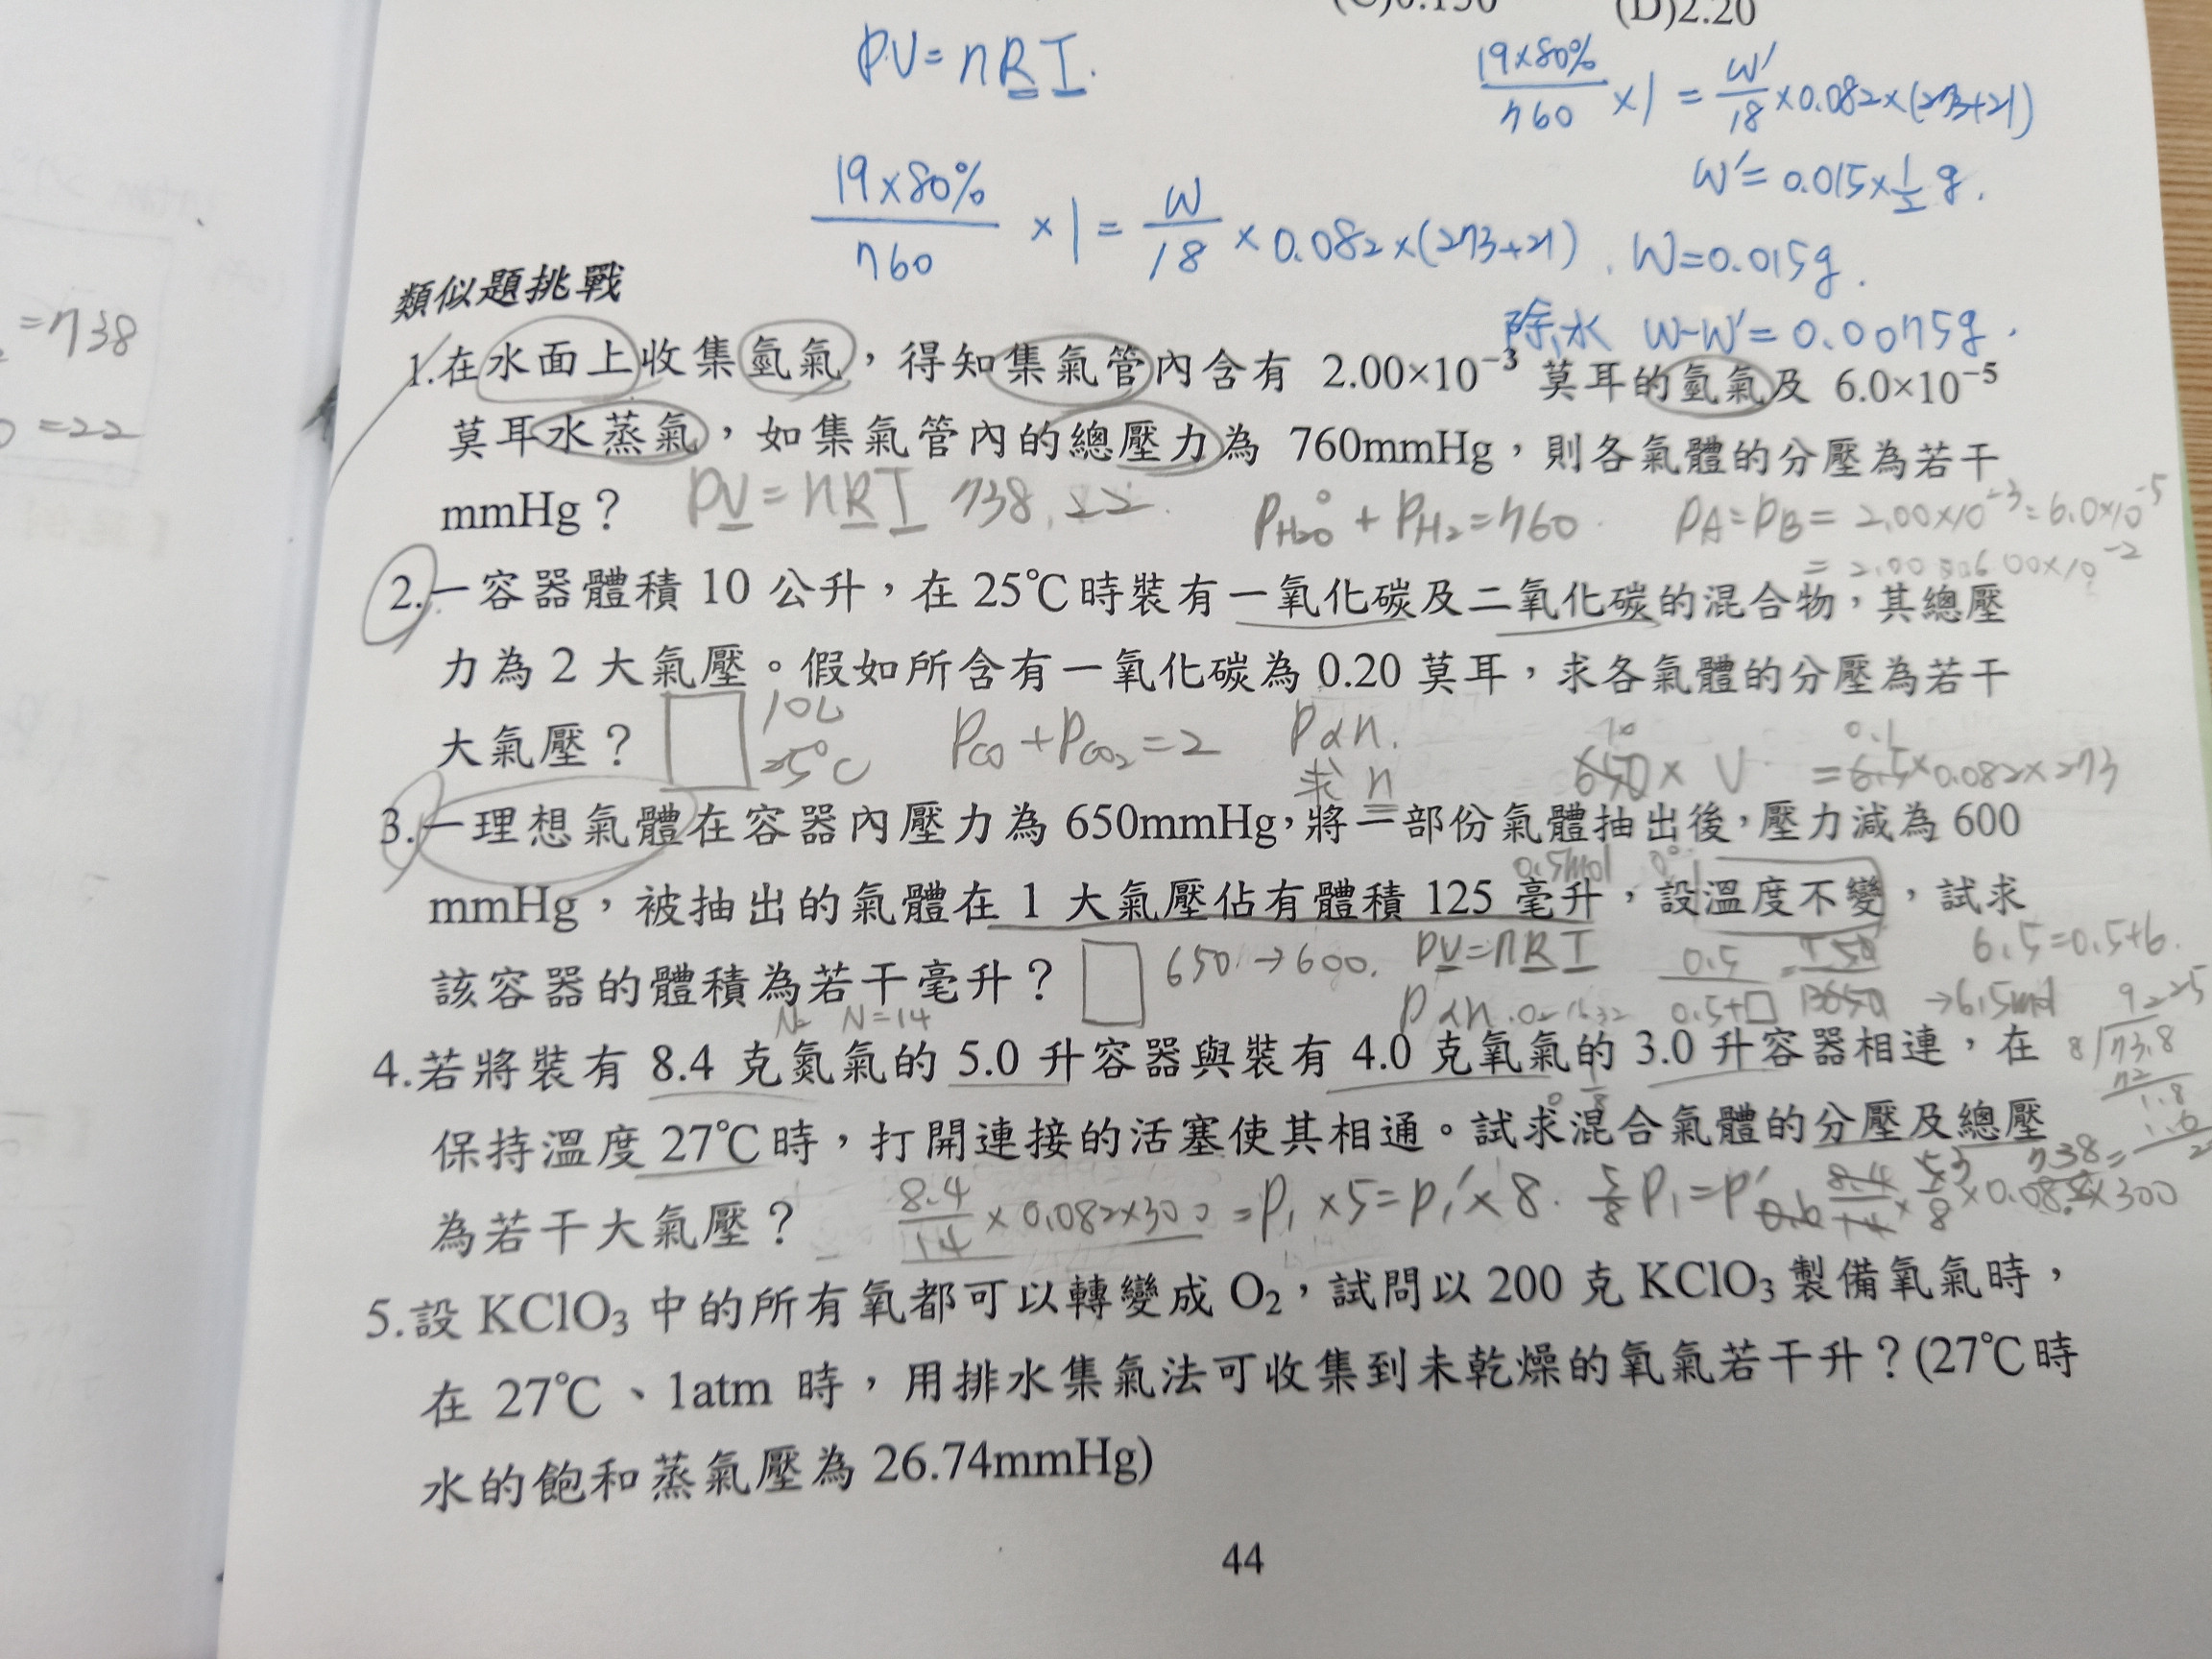 (C)0.150 (D)2.20
PV=nRT.
19×80%/760 ×1 = W'/18 ×0.082×(273+21)
W'= 0.015×1/2 g.
19×80%/760 ×1 = W/18 × 0.082×(273+21). W=0.015g.
除水 W-W'=0.0075g.
類似題挑戰
=738
=22
1.在水面上收集氫氣，得知集氣管內含有 2.00×10⁻³ 莫耳的氫氣及 6.0×10⁻⁵
莫耳水蒸氣，如集氣管內的總壓力為 760mmHg，則各氣體的分壓為若干
mmHg？ PV=nRT 738,22. P_H₂O + P_H₂=760. PA=PB= 2.00×10⁻³=6.0×10⁻⁵
2.一容器體積 10 公升，在 25℃時裝有一氧化碳及二氧化碳的混合物，其總壓
力為 2 大氣壓。假如所含有一氧化碳為 0.20 莫耳，求各氣體的分壓為若干
大氣壓？ 10L 25°C P_CO + P_CO₂ =2 P∝n. 求 n
650 × V = 6.5×0.082×273
3.一理想氣體在容器內壓力為 650mmHg，將一部份氣體抽出後，壓力減為 600
0.5mol
mmHg，被抽出的氣體在 1 大氣壓佔有體積 125 毫升，設溫度不變，試求
該容器的體積為若干毫升？ 650→600. PV=nRT 6.5=0.5+6.
P∝n. →6.5mol
N₂ N=14
4.若將裝有 8.4 克氮氣的 5.0 升容器與裝有 4.0 克氧氣的 3.0 升容器相連，在
保持溫度 27℃時，打開連接的活塞使其相通。試求混合氣體的分壓及總壓
為若干大氣壓？ 8.4/14 ×0.082×300 =P₁ ×5=P₁'×8. 5/8 P₁=P'
5.設 KClO₃ 中的所有氧都可以轉變成 O₂，試問以 200 克 KClO₃ 製備氧氣時，
在 27℃、1atm 時，用排水集氣法可收集到未乾燥的氧氣若干升？(27℃時
水的飽和蒸氣壓為 26.74mmHg)
44